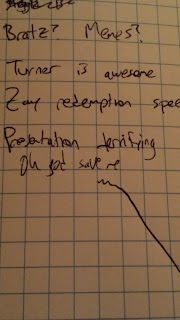 Bratz? Memes?
Turner is awesome
Zoey redemption spee
Presentation terrifying
Oh god save me